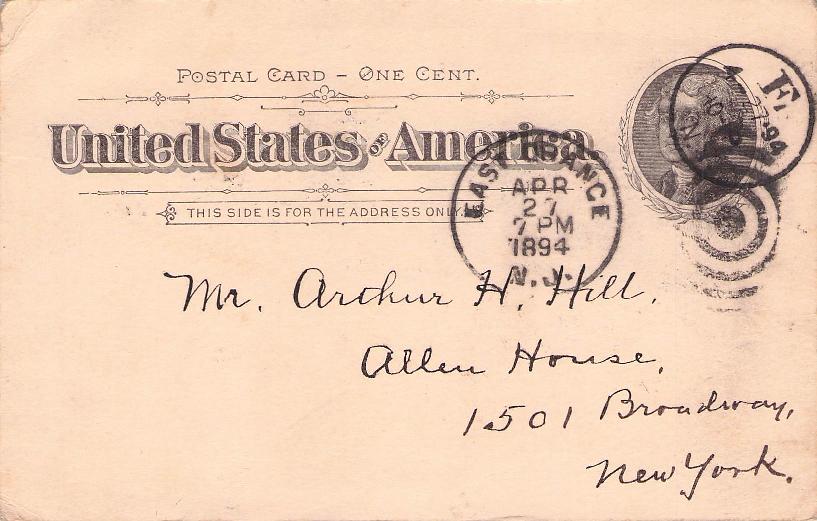 POSTAL CARD – ONE CENT.
United States of America.
THIS SIDE IS FOR THE ADDRESS ONLY.
EAST ORANGE
APR
27
7 PM
1894
N.J.
F.
94
Mr. Arthur H. Hill.
Allen House,
1501 Broadway,
New York.